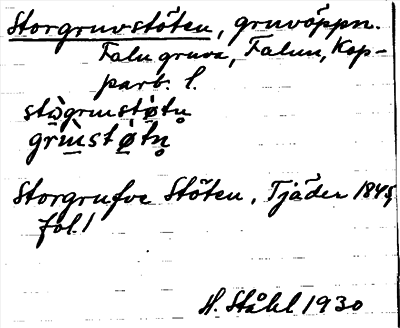 Storgruvstöten, gruvöppn.
Falu gruva, Falun, Kop-
parb. l.
Storgrufve Stöten, Tjäder 1845
fol. 1
H. Ståhl 1930